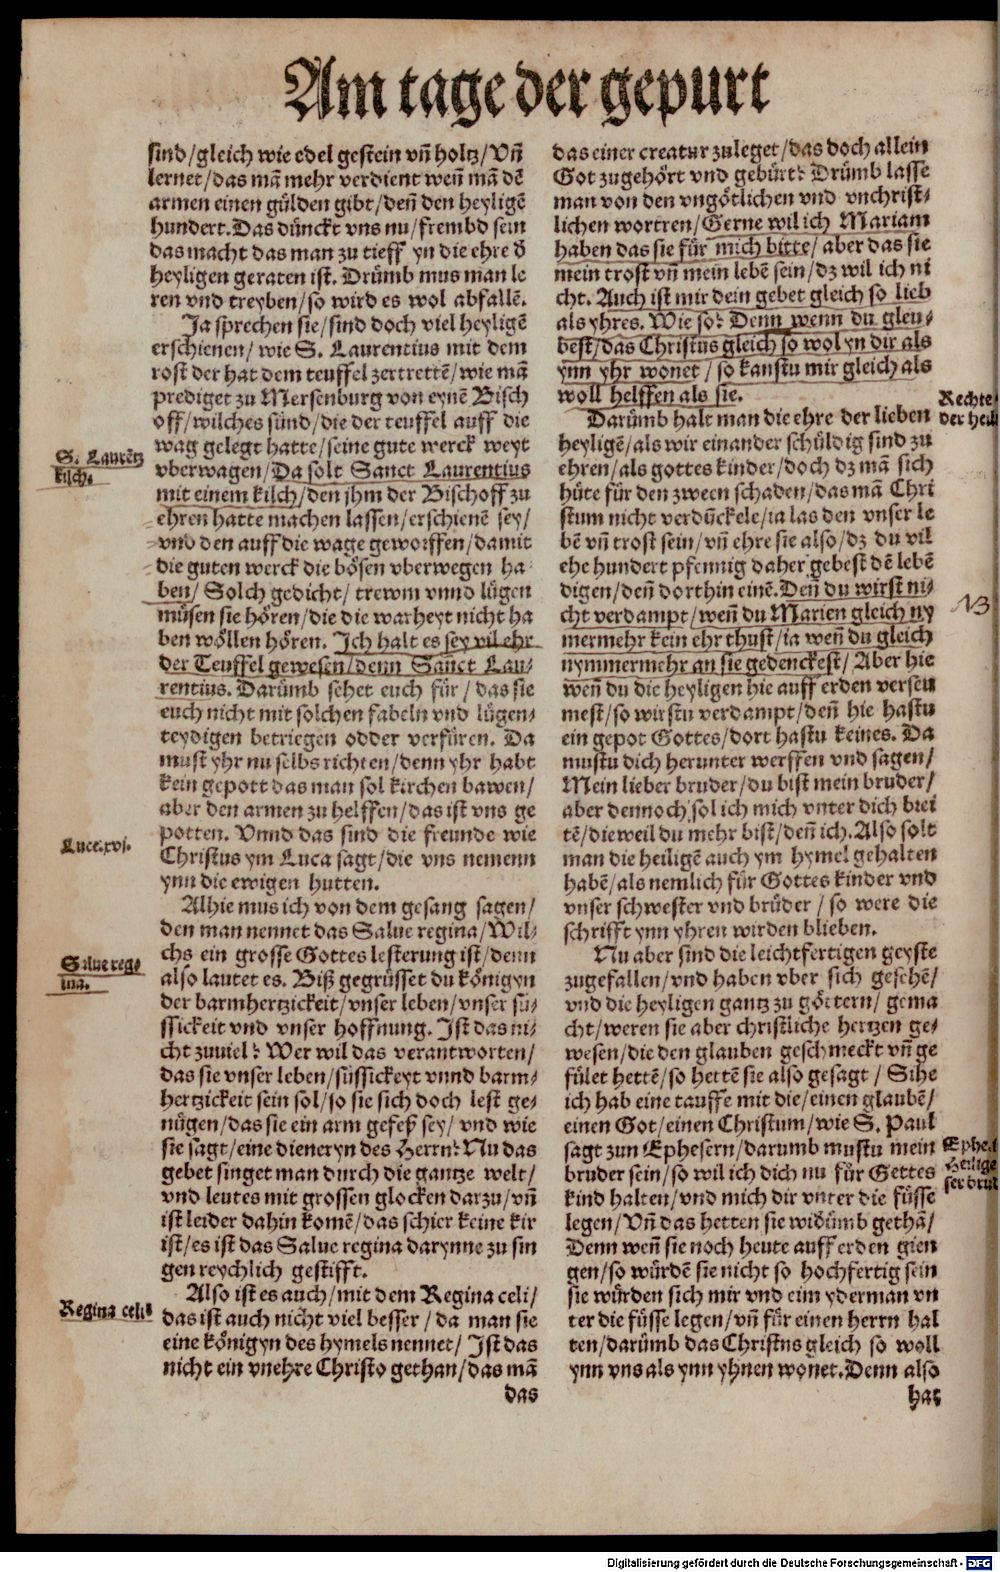 Am tage der gepurt
sind/gleich wie edel gestein vñ holtz/Vñ
lernet/das mā mehr verdient weñ mā dē
armen einen gülden gibt/deñ den heyligē
hundert. Das dünckt vns nu/frembd sein
das macht das man zu tieff yn die ehre d̕
heyligen geraten ist. Drümb mus man le
ren vnd treyben/so wird es wol abfallē.
Ja sprechen sie/sind doch viel heyligē
erschienen/wie S. Laurentius mit dem
rost der hat dem teuffel zertrettē/wie mā
prediget zu Mersenburg von eynē Bisch
off/wilches sünd/die der teuffel auff die
wag gelegt hatte/seine gute werck weyt
vberwagen/Da solt Sanct Laurentius
mit einem kilch/den jhm der Bischoff zu
ehren hatte machen lassen/erschienē sey/
vnd den auff die wage geworffen/damit
die guten werck die bösen vberwegen ha
ben/Solch gedicht/trewm vnnd lügen
müsen sie hören/die die warheyt nicht ha
ben wöllen hören. Ich halt es sey vil ehr
der Teuffel gewesen/denn Sanct Lau⸗
rentius. Darümb sehet euch für/das sie
euch nicht mit solchen fabeln vnd lügen⸗
teydigen betriegen odder verfüren. Da
must yhr nu selbs richten/denn yhr habt
kein gepott das man sol kirchen bawen/
aber den armen zu helffen/das ist vns ge
potten. Vnnd das sind die freunde wie
Christus ym Luca sagt/die vns nemenn
ynn die ewigen hutten.
Alhie mus ich von dem gesang sagen/
den man nennet das Salue regina/Wil⸗
chs ein grosse Gottes lesterung ist/denn
also lautet es. Biß gegrüsset du königyn
der barmhertzickeit/vnser leben/vnser sü⸗
ssickeit vnd vnser hoffnung. Ist das ni⸗
cht zuuiel? Wer wil das verantworten/
das sie vnser leben/süssickeyt vnnd barm⸗
hertzickeit sein sol/so sie sich doch lest ge⸗
nügen/das sie ein arm gefeß sey/vnd wie
sie sagt/eine dieneryn des Herrn? Nu das
gebet singet man durch die gantze welt/
vnd leutes mit grossen glocken darzu/vñ
ist leider dahin komē/das schier keine kir
ist/es ist das Salue regina darynne zu sin
gen reychlich gestifft.
Also ist es auch/mit dem Regina celi/
das ist auch nicht viel besser/da man sie
eine königyn des hymels nennet/Ist das
nicht ein vnehre Christo gethan/das mā
das
S. Laurētz
kilch.
Luce.xvj.
Salue reg⸗
ina.
Regina celi⸗
das einer creatur zuleget/das doch allein
Got zugehört vnd gebürt? Drümb lasse
man von den vngötlichen vnd vnchrist⸗
lichen wortren/Gerne wil ich Mariam
haben das sie für mich bitte/aber das sie
mein trost vñ mein lebē sein/dz wil ich ni
cht. Auch ist mir dein gebet gleich so lieb
als yhres. Wie so? Denn wenn du gleu⸗
best/das Christus gleich so wol yn dir als
ynn yhr wonet/so kanstu mir gleich als
woll helffen als sie.
Darümb halt man die ehre der lieben
heyligē/als wir einander schüldig sind zu
ehren/als gottes kinder/doch dz mā sich
hüte für den zween schaden/das mā Chri
stum nicht verdückele/ia las den vnser le
bē vñ trost sein/vñ ehre sie also/dz du vil
ehe hundert pfennig daher gebest dē lebē
digen/deñ dorthin einē. Deñ du wirst ni⸗
cht verdampt/weñ du Marien gleich ny
mermehr kein ehr thust/ia weñ du gleich
nymmermehr an sie gedenckest/Aber hie
weñ du die heyligen hie auff erden verseu
mest/so wirstu verdampt/deñ hie hastu
ein gepot Gottes/dort hastu keines. Da
mustu dich herunter werffen vnd sagen/
Mein lieber bruder/du bist mein bruder/
aber dennoch sol ich mich vnter dich brei
tē/dieweil du mehr bist/deñ ich. Also solt
man die heiligē auch ym hymel gehalten
habē/als nemlich für Gottes kinder vnd
vnser schwester vnd brüder/so were die
schrifft ynn yhren wirden blieben.
Nu aber sind die leichtfertigen geyste
zugefallen/vnd haben vber sich gesehē/
vnd die heyligen gantz zu göttern/gema
cht/weren sie aber christliche hertzen ge⸗
wesen/die den glauben geschmeckt vñ ge
fület hettē/so hettē sie also gesagt/Sihe
ich hab eine tauffe mit die/einen glaubē/
einen Got/einen Christum/wie S. Paul
sagt zun Ephesern/darumb mustu mein
bruder sein/so wil ich dich nu für Gettes
kind halten/vnd mich dir vnter die füsse
legen/Vñ das hetten sie widümb gethā/
Denn weñ sie noch heute auff erden gien
gen/so würdē sie nicht so hochfertig sein
sie würden sich mir vnd eim yderman vn
ter die füsse legen/vñ für einen herrn hal
ten/darümb das Christus gleich so woll
ynn vns als ynn yhnen wonet. Denn also
hat
Rechte
der heili
NB
Ephe.
Heilige
ser brud
Digitalisierung gefördert durch die Deutsche Forschungsgemeinschaft - DFG